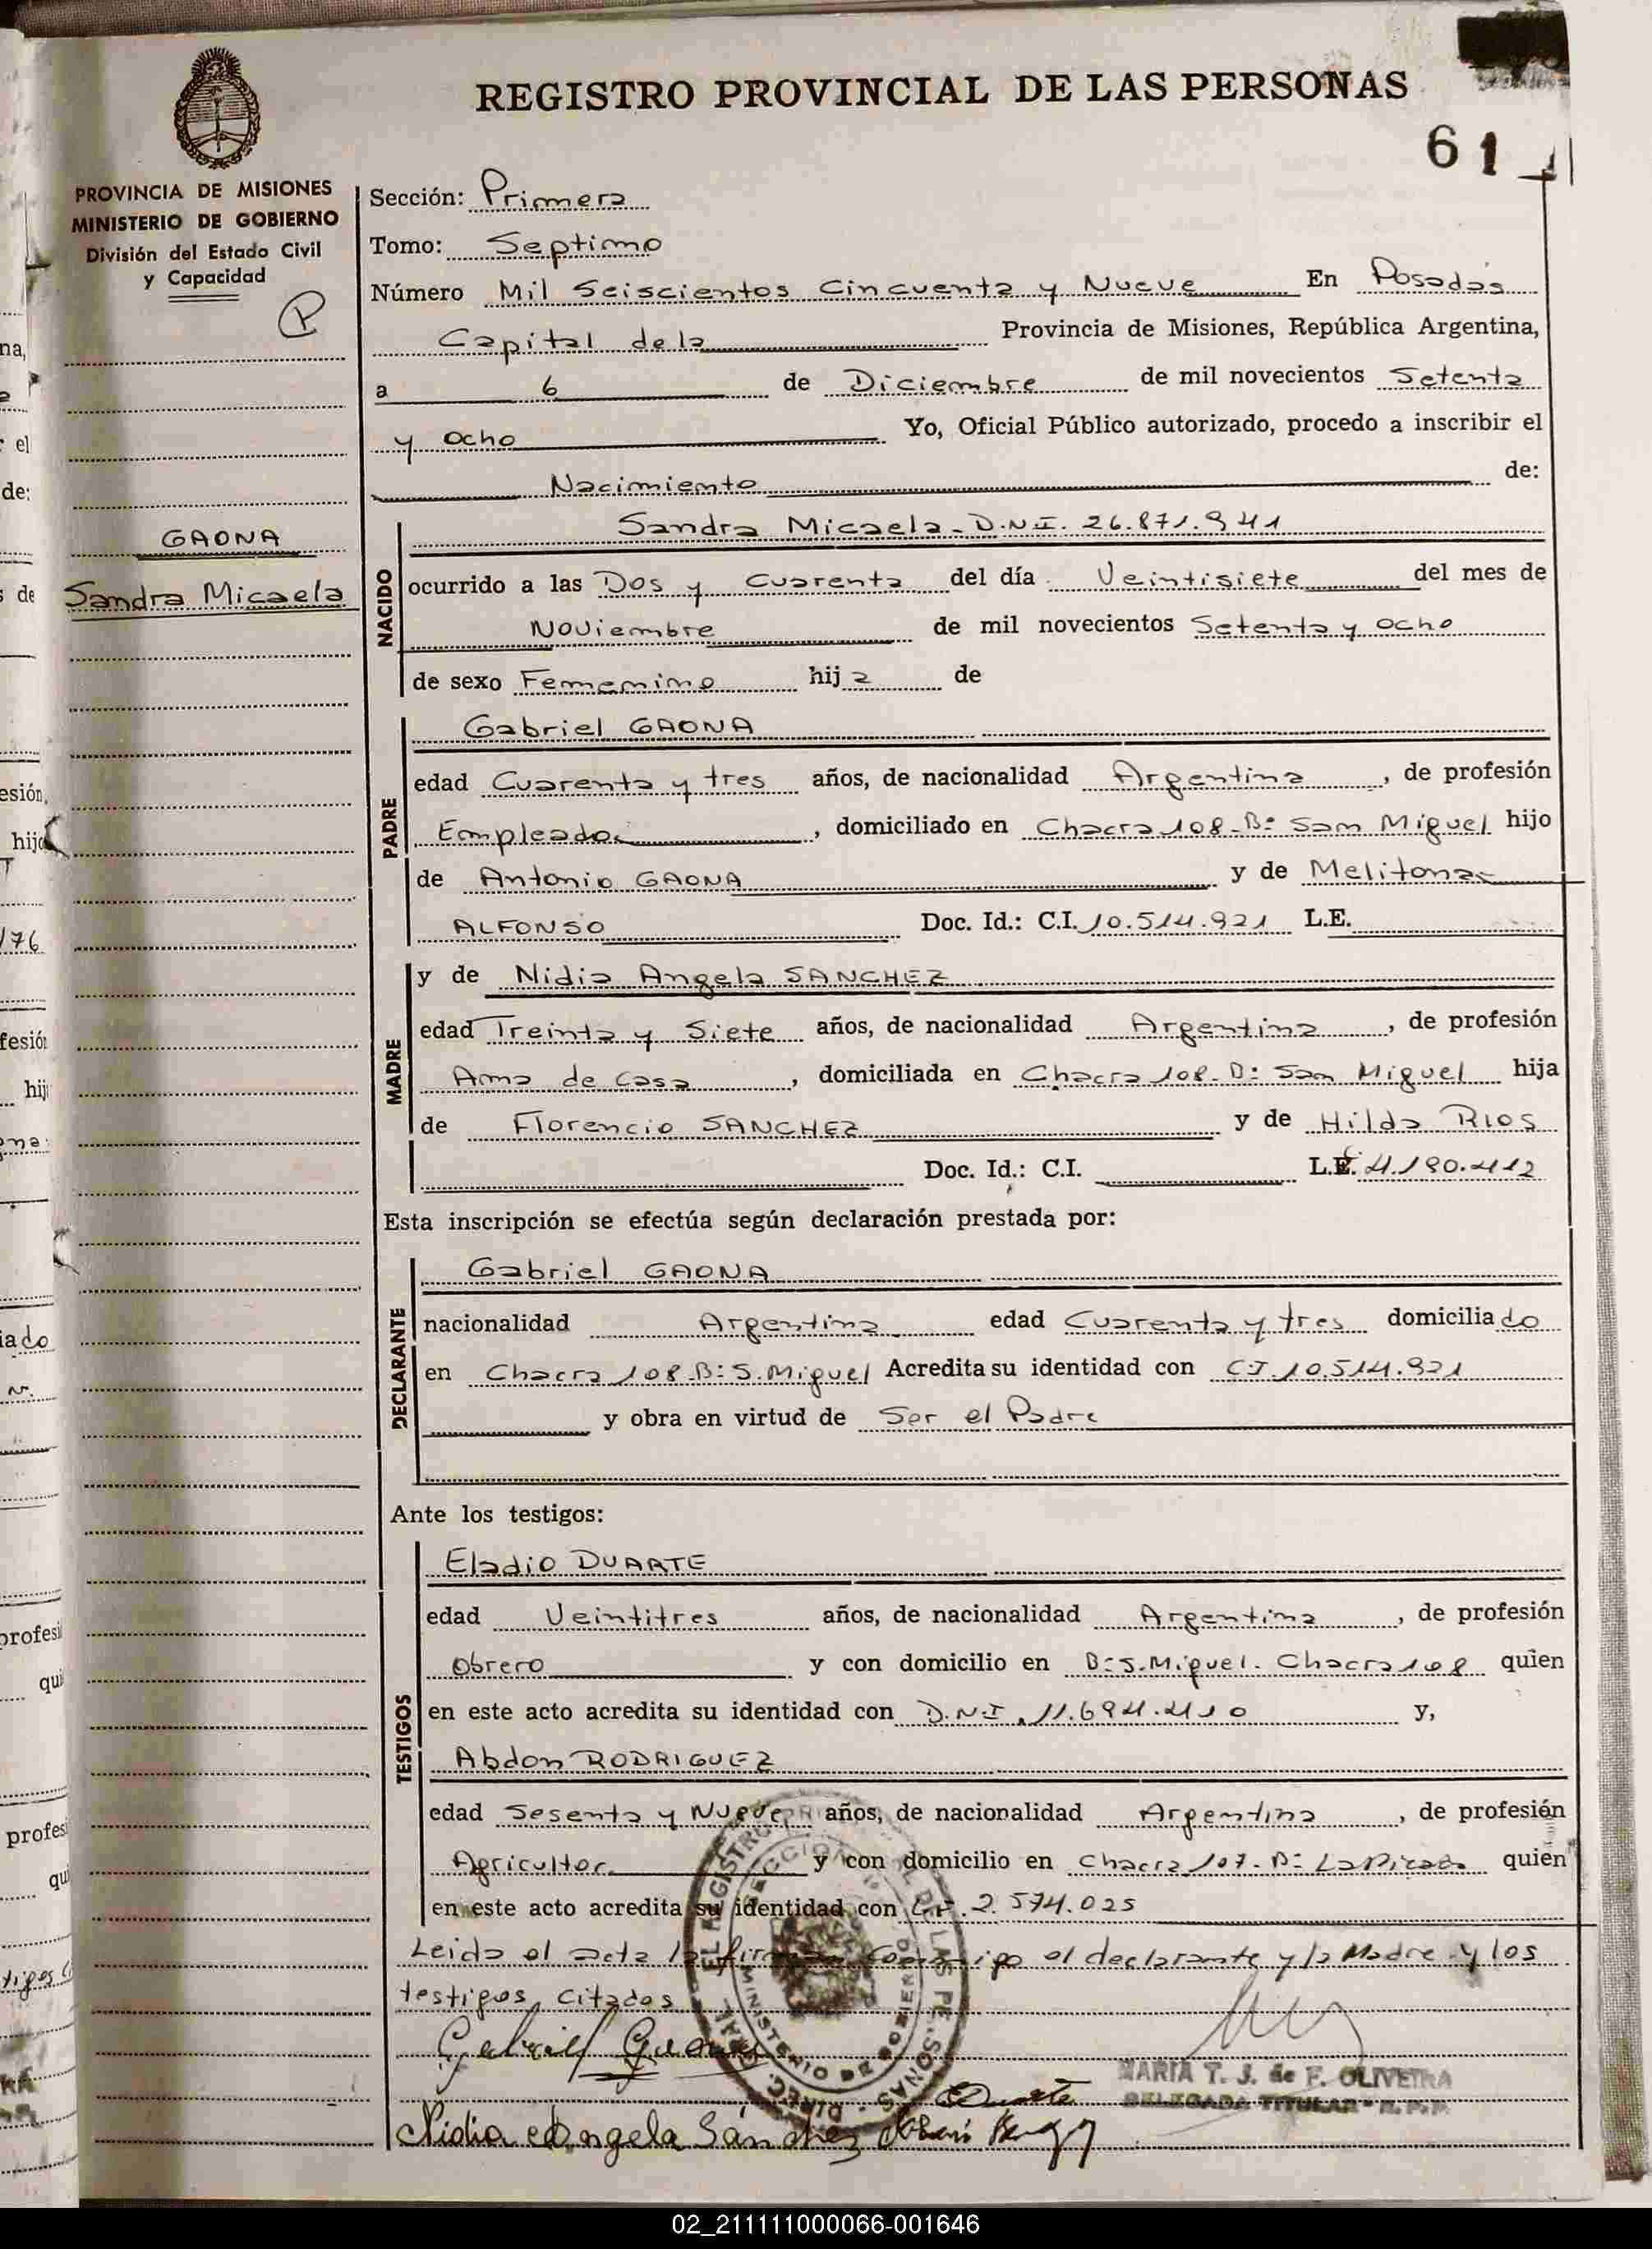 REGISTRO PROVINCIAL DE LAS PERSONAS
61
PROVINCIA DE MISIONES
MINISTERIO DE GOBIERNO
División del Estado Civil
y Capacidad
P
GAONA
Sandra Micaela
Sección: Primera
Tomo: Septimo
Número Mil Seiscientos Cincuenta y Nueve En Posadas
Capital de la Provincia de Misiones, República Argentina,
a 6 de Diciembre de mil novecientos Setenta
y ocho Yo, Oficial Público autorizado, procedo a inscribir el
Nacimiento de:
NACIDO
Sandra Micaela - D.N.I. 26.871.941
ocurrido a las Dos y Cuarenta del día Veintisiete del mes de
Noviembre de mil novecientos Setenta y ocho
de sexo Femenino hija de
PADRE
Gabriel GAONA
edad Cuarenta y tres años, de nacionalidad Argentina, de profesión
Empleado, domiciliado en Chacra 108-Bº San Miguel hijo
de Antonio GAONA y de Melitona
ALFONSO Doc. Id.: C.I. 10.514.921 L.E.
MADRE
y de Nidia Angela SANCHEZ
edad Treinta y Siete años, de nacionalidad Argentina, de profesión
Ama de Casa, domiciliada en Chacra 108-Bº San Miguel hija
de Florencio SANCHEZ y de Hilda RIOS
Doc. Id.: C.I. 4.190.412
Esta inscripción se efectúa según declaración prestada por:
DECLARANTE
Gabriel GAONA
nacionalidad Argentina edad Cuarenta y tres domiciliado
en Chacra 108-Bº S. Miguel Acredita su identidad con CI. 10.514.921
y obra en virtud de Ser el Padre
Ante los testigos:
TESTIGOS
Eladio DUARTE
edad Veintitres años, de nacionalidad Argentina, de profesión
Obrero y con domicilio en Bº S. Miguel. Chacra 108 quien
en este acto acredita su identidad con D.N.I. 11.694.410 y,
Abdon RODRIGUEZ
edad Sesenta y Nueve años, de nacionalidad Argentina, de profesión
Agricultor y con domicilio en Chacra 107-Bº La Picada quien
en este acto acredita su identidad con 2.574.025
Leida el acta la firman conmigo el declarante y la Madre y los
testigos Citados
Gabriel Gaona
MARIA T. J. de F. OLIVEIRA
DELEGADA TITULAR - R.P.P.
EDuarte
Nidia Angela Sánchez
02_211111000066-001646